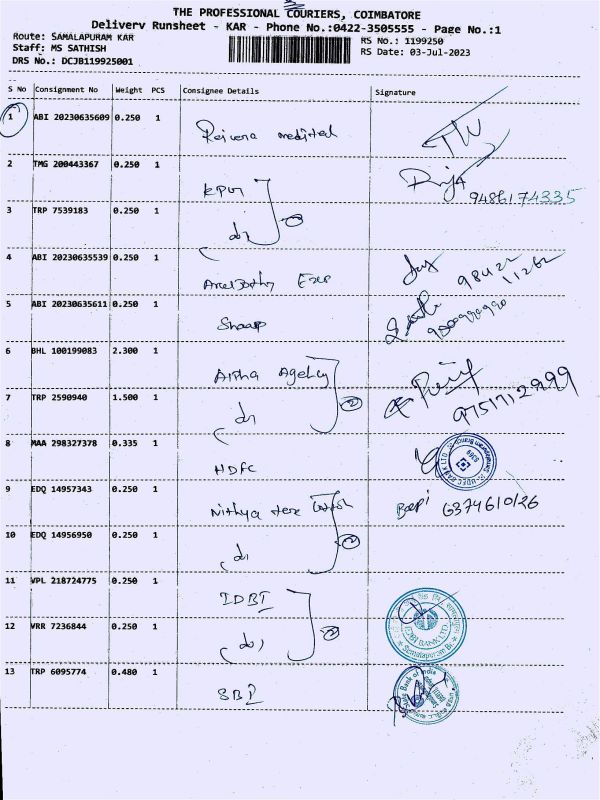 THE PROFESSIONAL COURIERS, COIMBATORE
Delivery Runsheet - KAR - Phone No.:0422-3505555 - Page No.:1
Route: SAMALAPURAM KAR
RS No.: 1199250
Staff: MS SATHISH
RS Date: 03-Jul-2023
DRS No.: DCJB119925001
S No Consignment No Weight PCS Consignee Details Signature
1 ABI 20230635609 0.250 1
2 TMG 200443367 0.250 1 KPM
9486174335
3 TRP 7539183 0.250 1 do
4 ABI 20230635539 0.250 1
98422 11262
5 ABI 20230635611 0.250 1 Sharp
6 BHL 100199083 2.300 1 Artha Agency
7 TRP 2590940 1.500 1 do
9751712999
8 MAA 298327378 0.335 1 HDFC
9 EDQ 14957343 0.250 1 Nithya tex
6374610126
10 EDQ 14956950 0.250 1 do
11 VPL 218724775 0.250 1 IDBI
12 VRR 7236844 0.250 1 do
IDBI BANK LTD
Samalapuram Br.
13 TRP 6095774 0.480 1 SBI